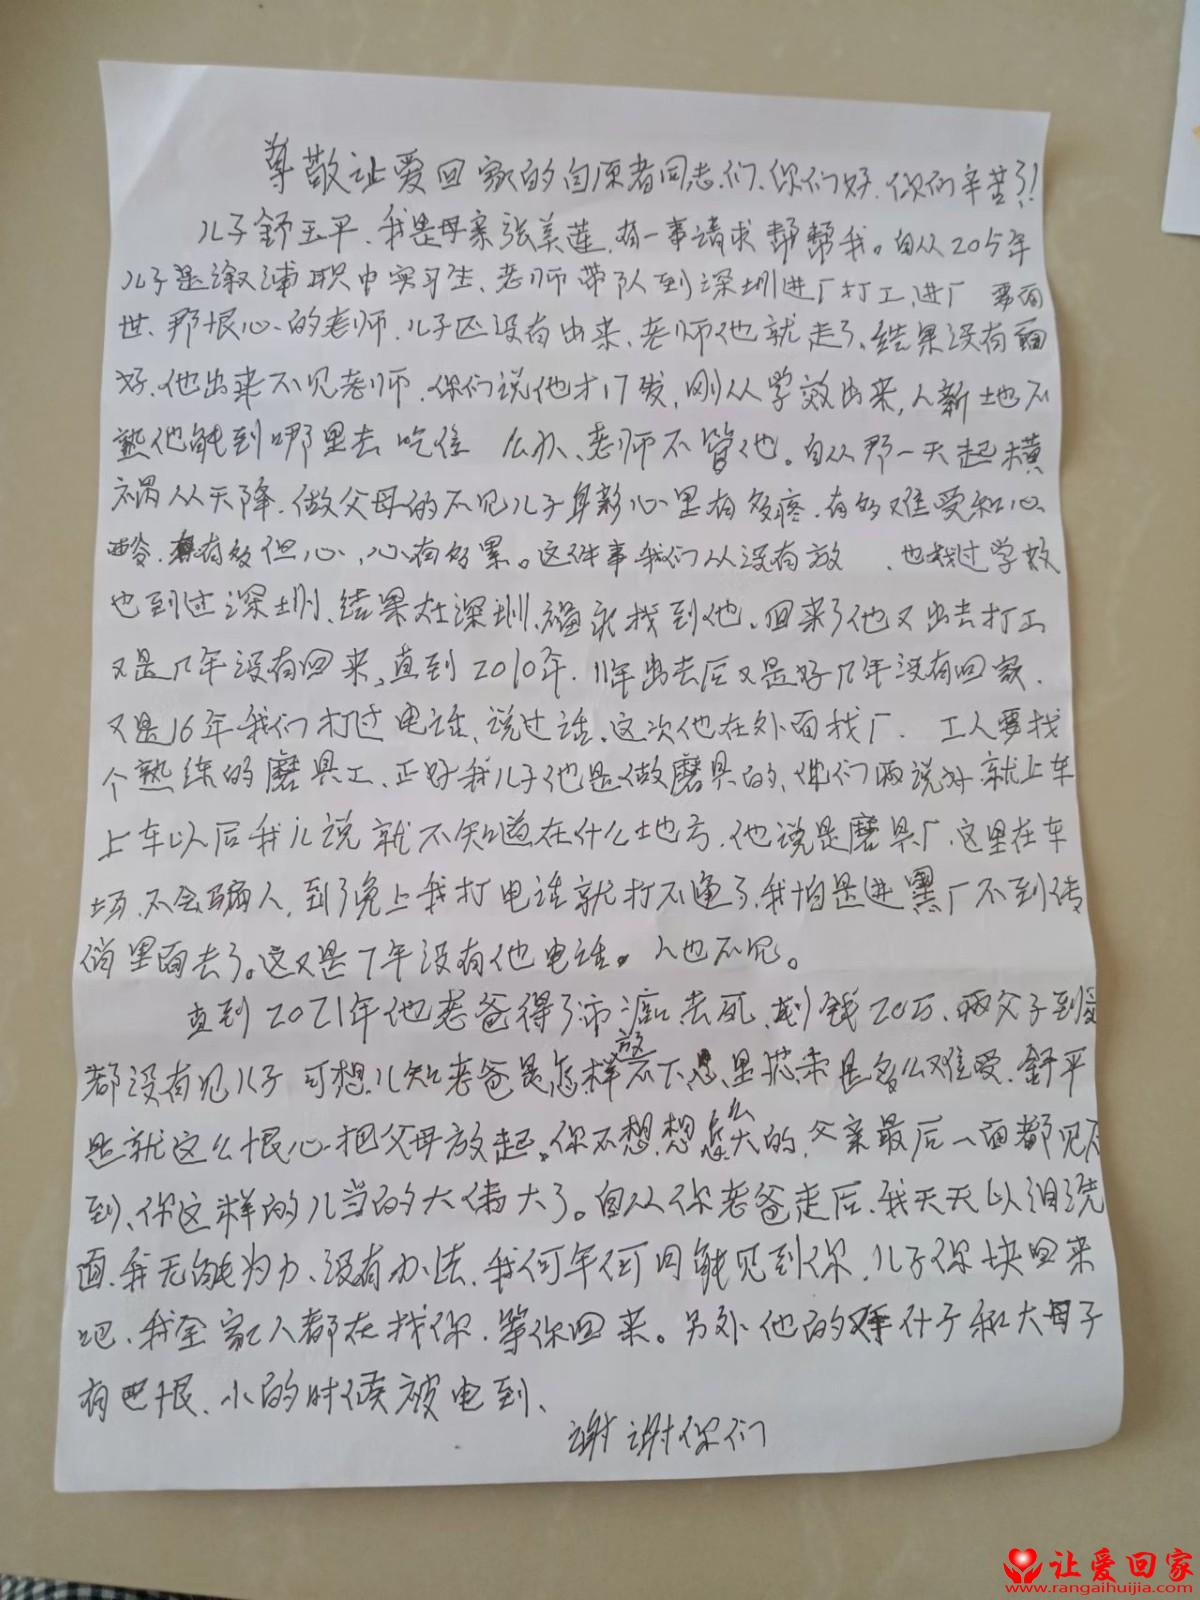 尊敬让爱回家的自原者同志们、你们好、你们辛苦了!
儿子舒玉平、我是母亲张美莲、有一事请求帮帮我。自从205年
儿子是溆浦职中实习生、老师带队到深圳进厂打工、进厂要面
世、那恨心的老师、儿子还没有出来、老师他就走了、结果没有面
好、他出来不见老师、你们说他才17岁、刚从学效出来,人新地不
熟他能到哪里去吃住么办、老师不管他。自从那一天起横
祸从天降、做父母的不见儿子身影心里有多疼、有多难受和心
酸、有多但心、心有多累。这件事我们从没有放、也找过学效
也到过深圳、结果在深圳找到他。回来了他又出去打工
又是几年没有回来,直到2010年、11年出去后又是好几年没有回家、
又是16年我们打过电话、说过话、这次他在外面找厂、工人要找
个熟练的磨具工、正好我儿子他是做磨具的、他们两说好就上车
上车以后我儿说就不知道在什么地方、他说是磨具厂、这里在车
场、不会骗人、到了免上我打电话就打不通了、我怕是进黑厂不到传
俏里面去了。这又是7年没有他电话。人也不见。
直到2021年他老爸得了去死、钱20万、两父子到
都没有见儿子可想儿知老爸是怎样放不下思里是多么难受、舒平
是就这么恨心把父母放起。你不想想怎么大的、父亲最后一面都见不
到、你这样的儿当的大伟大了。自从你老爸走后、我天天以泪洗
面、我无能为力、没有办法、我何年何月能见到你、儿子你快回来
吧、我全家人都在找你、等你回来。另外他的什子和大母子
有巴恨、小的时候被电到、
谢谢你们
让爱回家
www.rangaihuijia.com